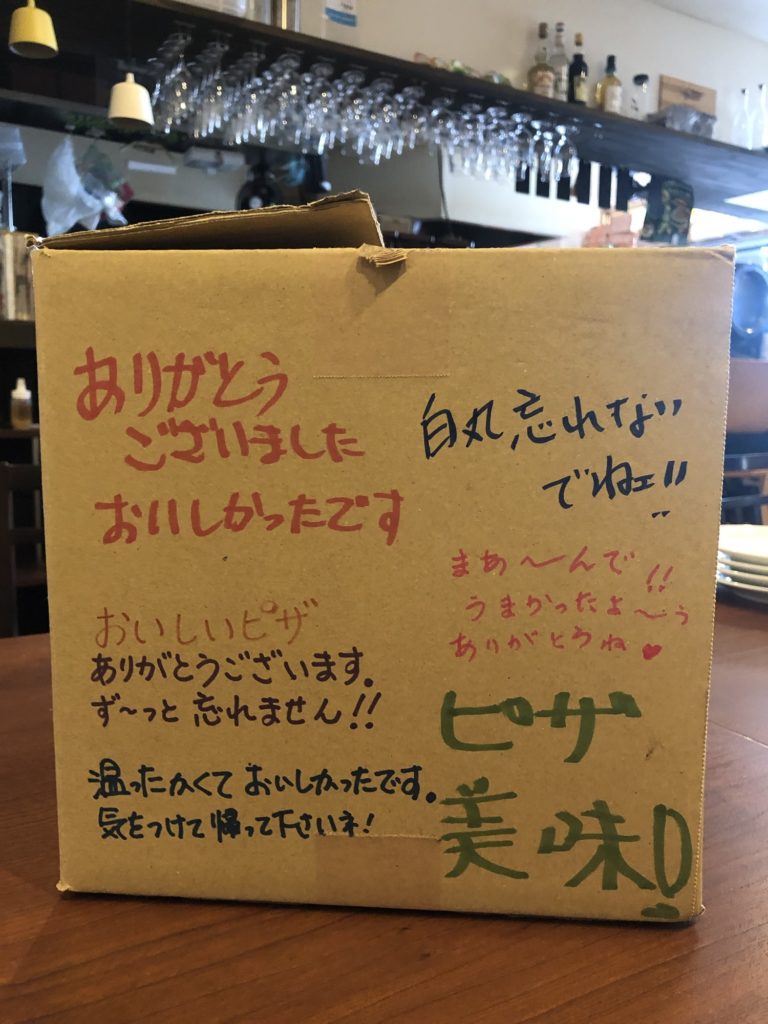 ありがとう
ございました
おいしかったです
白丸忘れない
でねェ!!
まあ〜んで!!
うまかったよ〜う
ありがとうね♥
おいしいピザ
ありがとうございます。
ず〜っと忘れません!!
温ったかくておいしかったです。
気をつけて帰って下さいネ!
ピザ
美味!